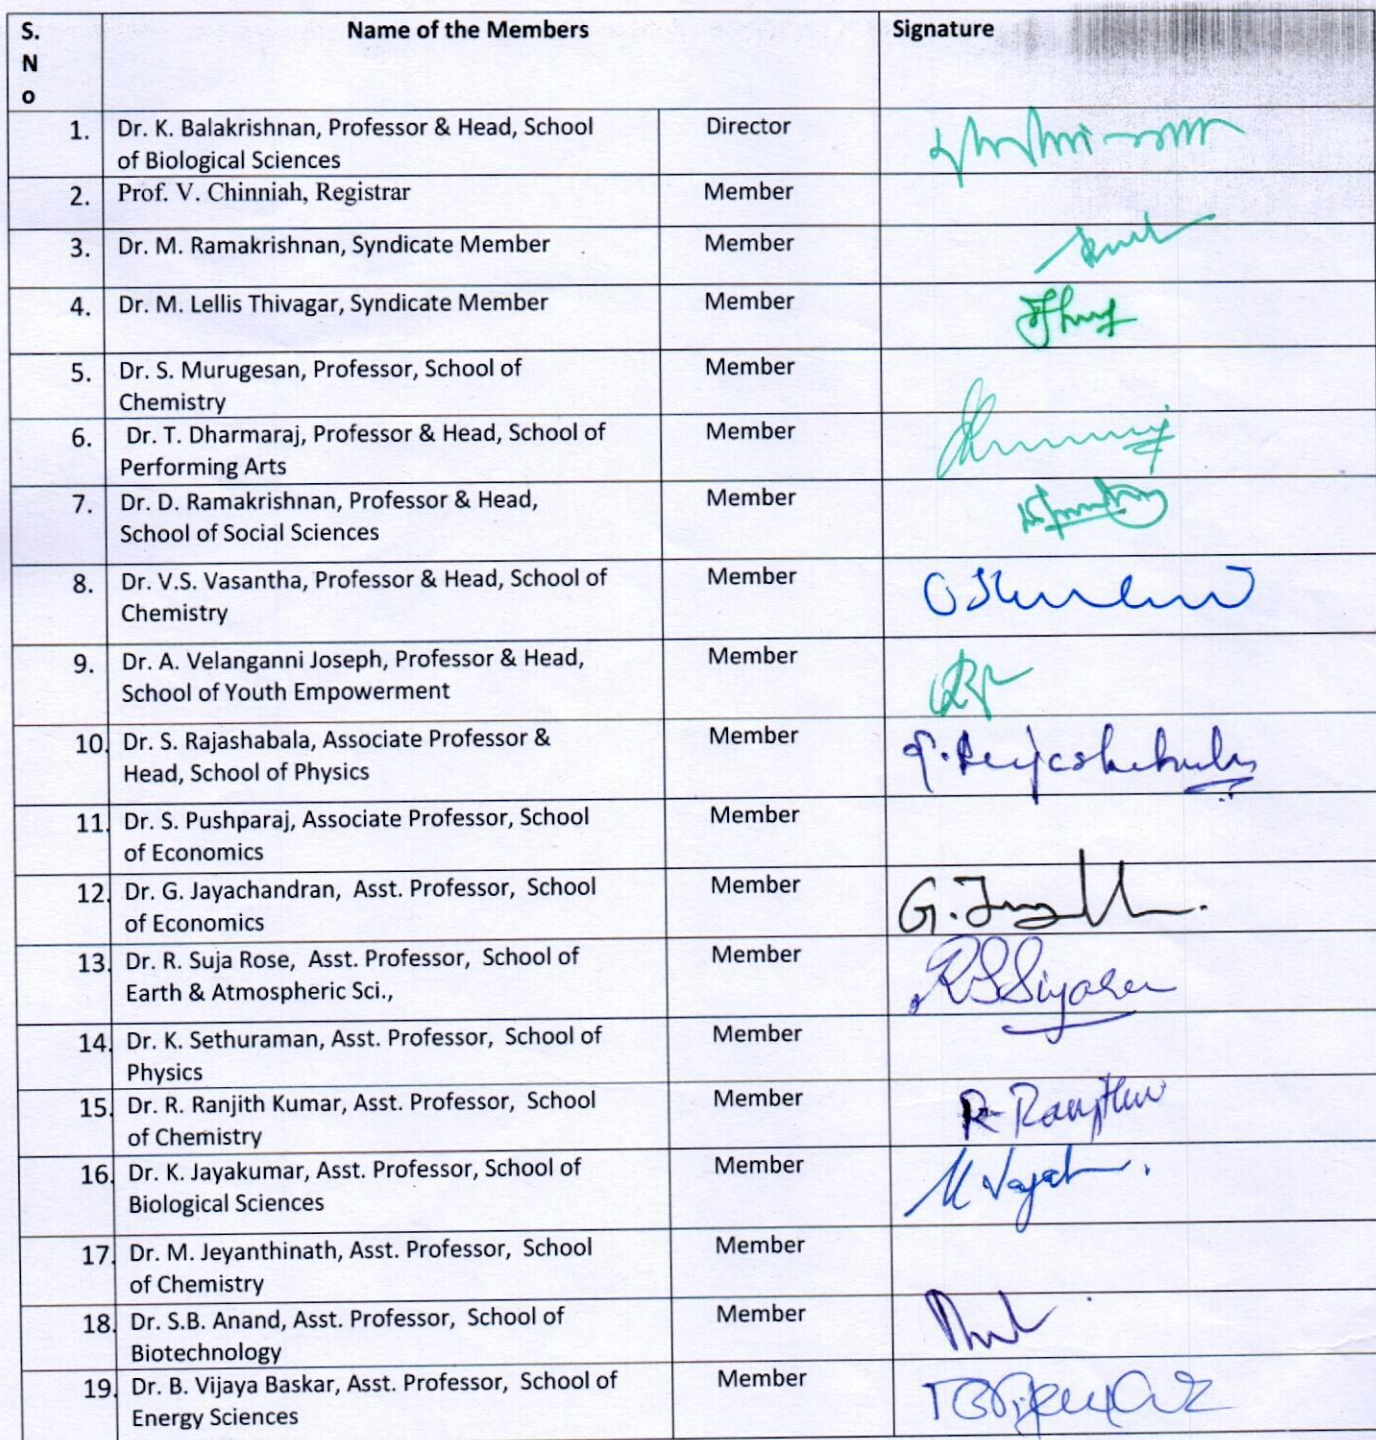 S.
N
o
Name of the Members
Signature
1. Dr. K. Balakrishnan, Professor & Head, School
of Biological Sciences
Director
2. Prof. V. Chinniah, Registrar
Member
3. Dr. M. Ramakrishnan, Syndicate Member
Member
4. Dr. M. Lellis Thivagar, Syndicate Member
Member
5. Dr. S. Murugesan, Professor, School of
Chemistry
Member
6. Dr. T. Dharmaraj, Professor & Head, School of
Performing Arts
Member
7. Dr. D. Ramakrishnan, Professor & Head,
School of Social Sciences
Member
8. Dr. V.S. Vasantha, Professor & Head, School of
Chemistry
Member
9. Dr. A. Velanganni Joseph, Professor & Head,
School of Youth Empowerment
Member
10. Dr. S. Rajashabala, Associate Professor &
Head, School of Physics
Member
11. Dr. S. Pushparaj, Associate Professor, School
of Economics
Member
12. Dr. G. Jayachandran, Asst. Professor, School
of Economics
Member
13. Dr. R. Suja Rose, Asst. Professor, School of
Earth & Atmospheric Sci.,
Member
14. Dr. K. Sethuraman, Asst. Professor, School of
Physics
Member
15. Dr. R. Ranjith Kumar, Asst. Professor, School
of Chemistry
Member
16. Dr. K. Jayakumar, Asst. Professor, School of
Biological Sciences
Member
17. Dr. M. Jeyanthinath, Asst. Professor, School
of Chemistry
Member
18. Dr. S.B. Anand, Asst. Professor, School of
Biotechnology
Member
19. Dr. B. Vijaya Baskar, Asst. Professor, School of
Energy Sciences
Member